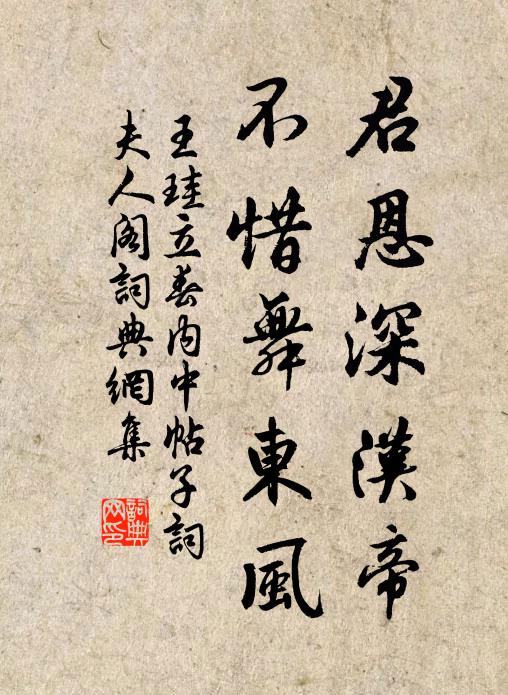 君恩深漢帝
不惜舞東風
王珪立春内中帖子詞
夫人閣詞典網集
詞典
網印